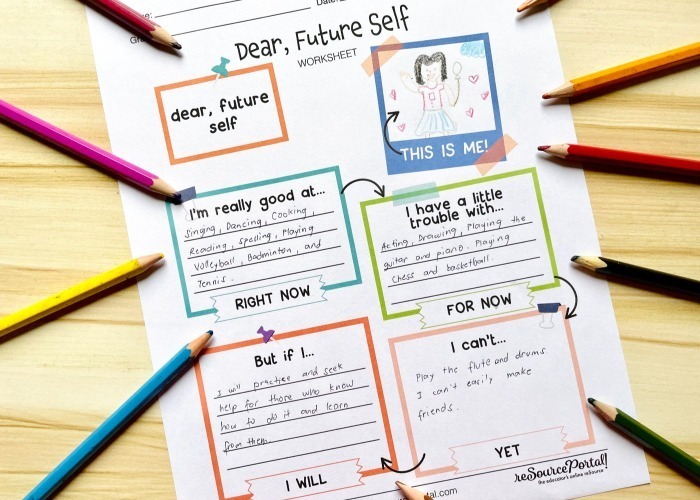 Dear, Future Self
WORKSHEET
dear, future
self
THIS IS ME!
I'm really good at...
Singing, Dancing, Cooking,
Reading, Spelling, Playing
Volleyball, Badminton, and
Tennis.
RIGHT NOW
I have a little
trouble with...
Acting, Drawing, Playing the
guitar and piano. Playing
Chess and basketball.
FOR NOW
But if I...
I will practice and seek
help for those who know
how to do it and learn
from them.
I WILL
I can't...
Play the flute and drums
I can't easily make
friends.
YET
reSourcePortal!
the educator's online resource